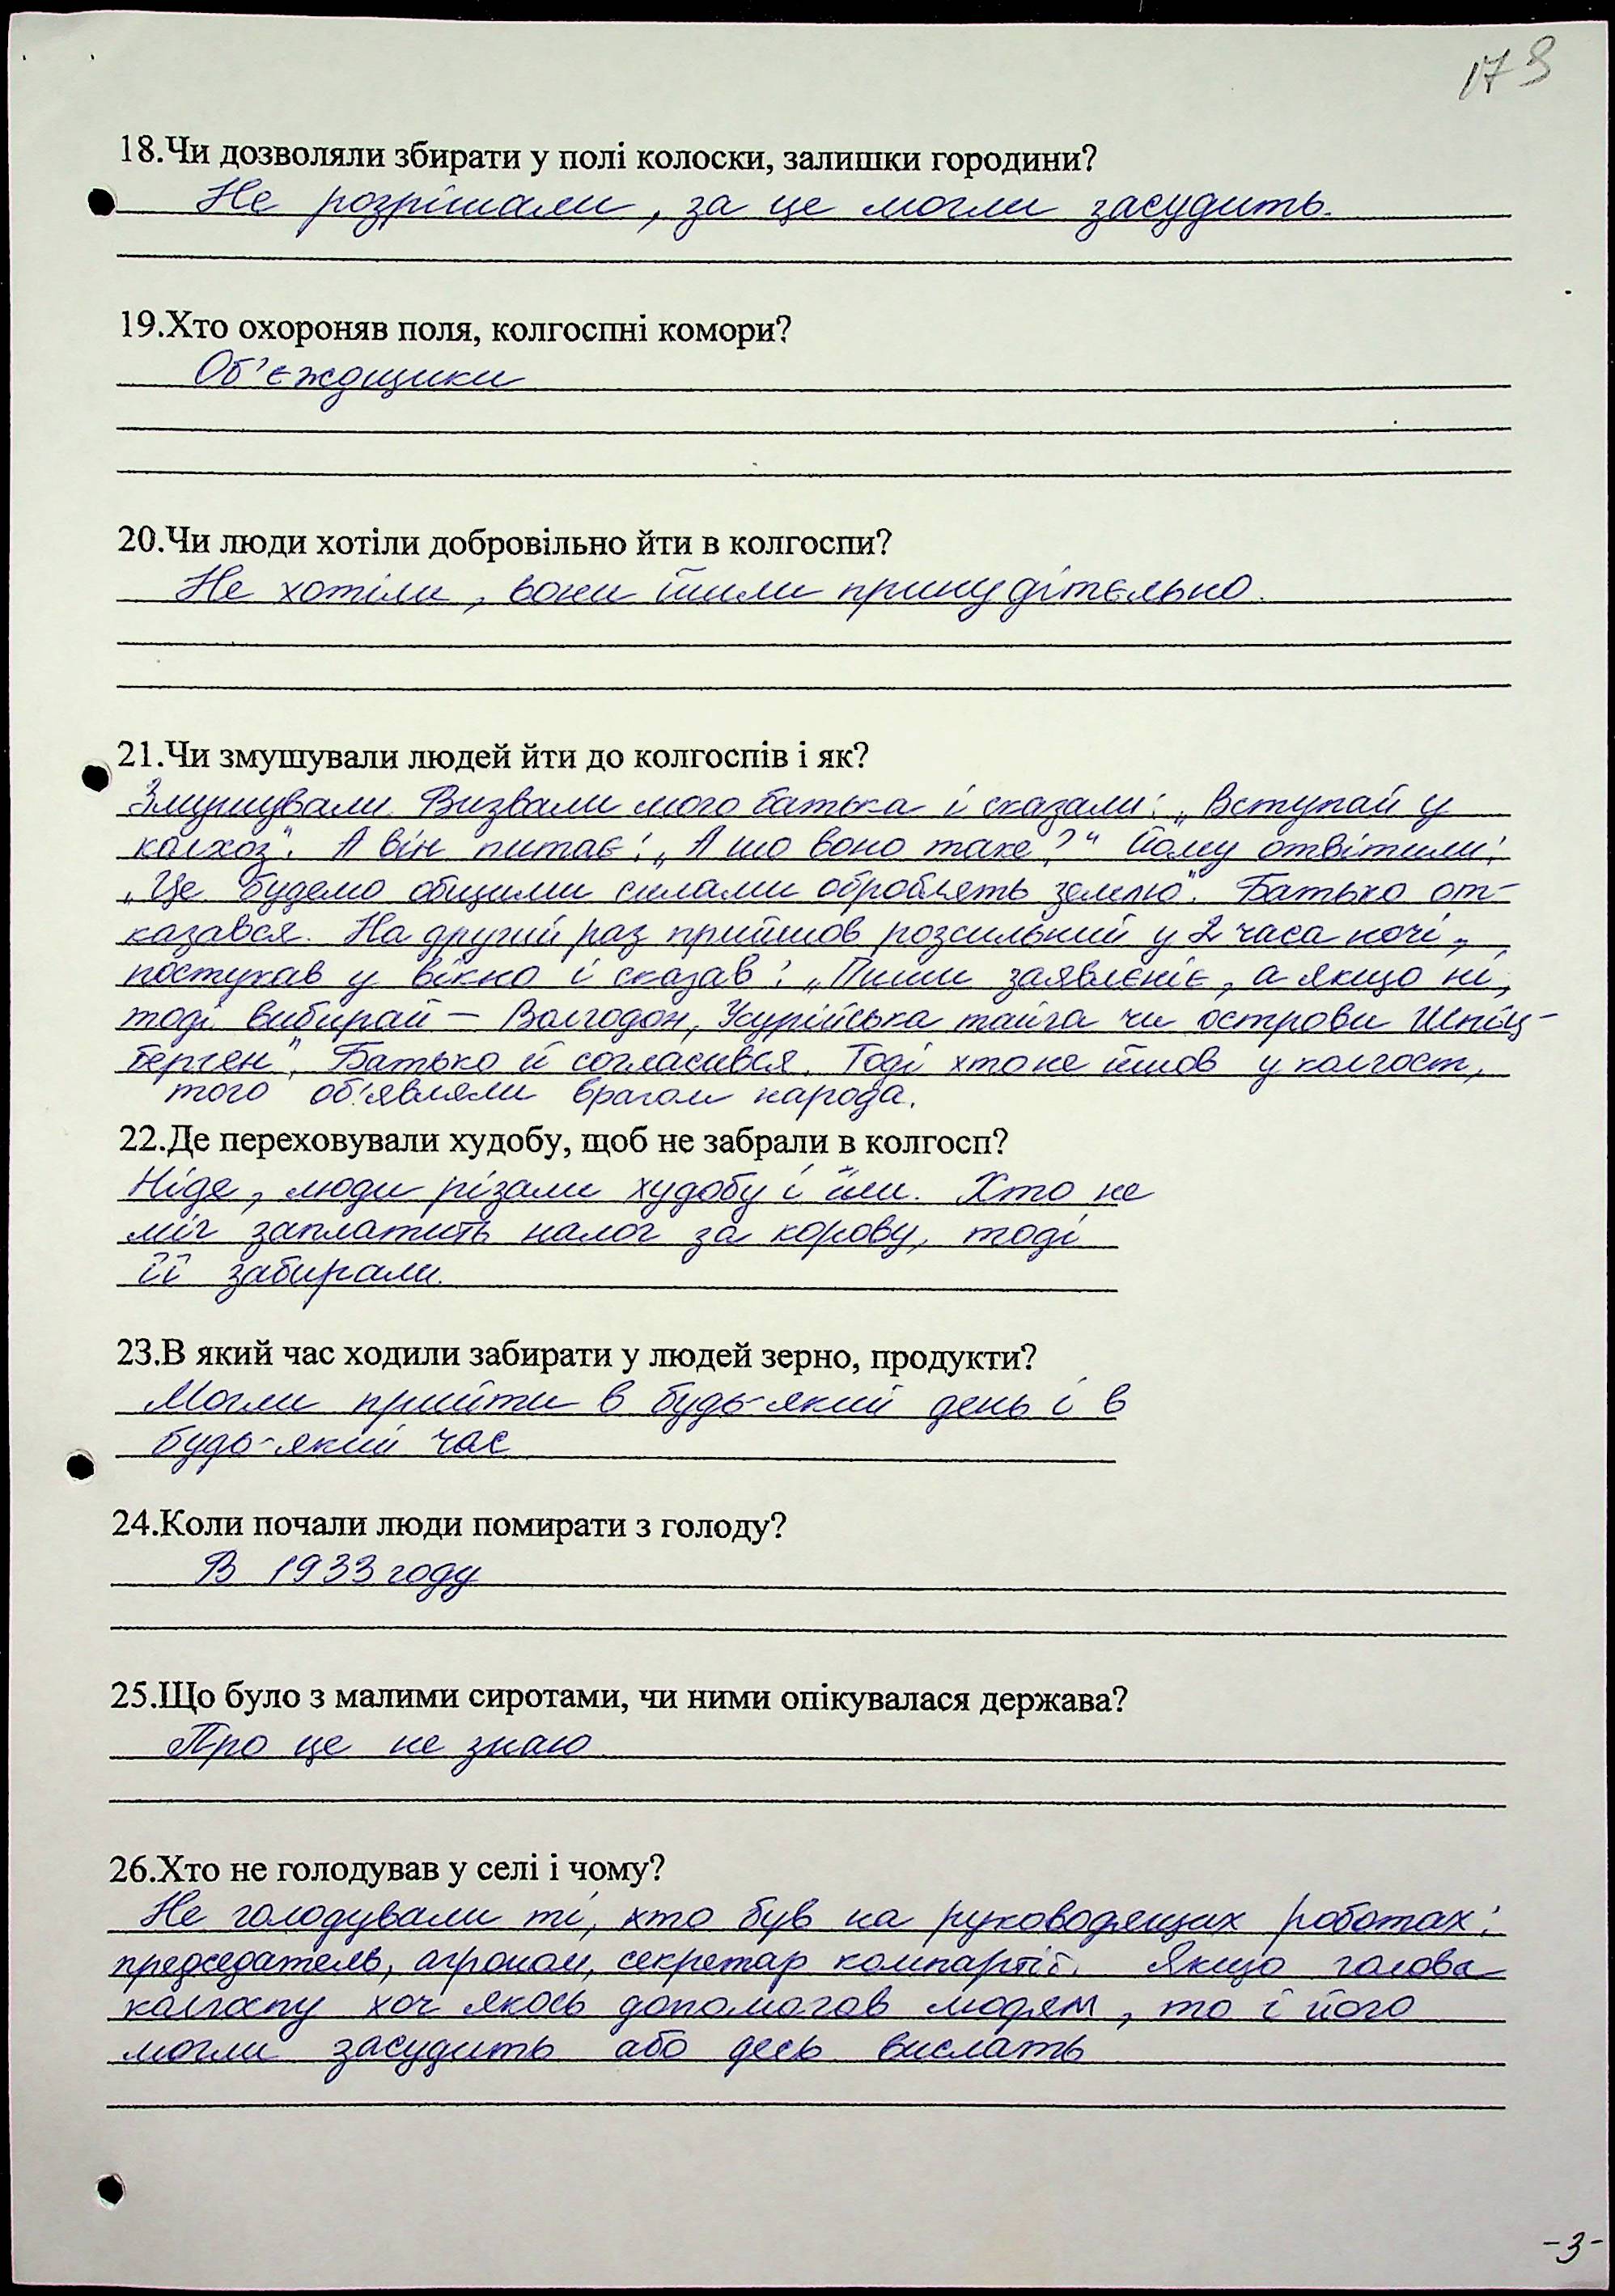 179
18.Чи дозволяли збирати у полі колоски, залишки городини?
Не розрішали, за це могли засудить.
19.Хто охороняв поля, колгоспні комори?
Об'єждщики
20.Чи люди хотіли добровільно йти в колгоспи?
Не хотіли, вони йшли принудітєльно.
21.Чи змушували людей йти до колгоспів і як?
Змушували. Визвали мого батька і сказали: „Вступай у
колхоз". А він питає: „А шо воно таке?" Йому отвітили:
„Це будемо общими силами обробльять землю". Батько от-
казався. На другий раз прийшов розсильний у 2 часа ночі,
постукав у вікно і сказав: „Пиши заявлєніє, а якщо ні,
тоді вибирай – Волгодон, Усурійська тайга чи острови Шпіц-
берген". Батько й согласився. Тоді хто не йшов у колгосп,
того об'являли врагом народа.
22.Де переховували худобу, щоб не забрали в колгосп?
Ніде, люди різали худобу і їли. Хто не
міг заплатить налог за корову, тоді
її забирали.
23.В який час ходили забирати у людей зерно, продукти?
Могли прийти в будь-який день і в
будь-який час
24.Коли почали люди помирати з голоду?
В 1933 году
25.Що було з малими сиротами, чи ними опікувалася держава?
Про це не знаю
26.Хто не голодував у селі і чому?
Не голодували ті, хто був на руководящих роботах:
председатель, агроном, секретар компартії. Якщо голова
колгоспу хоч якось допомогав людям, то і його
могли засудить або десь вислать
-3-